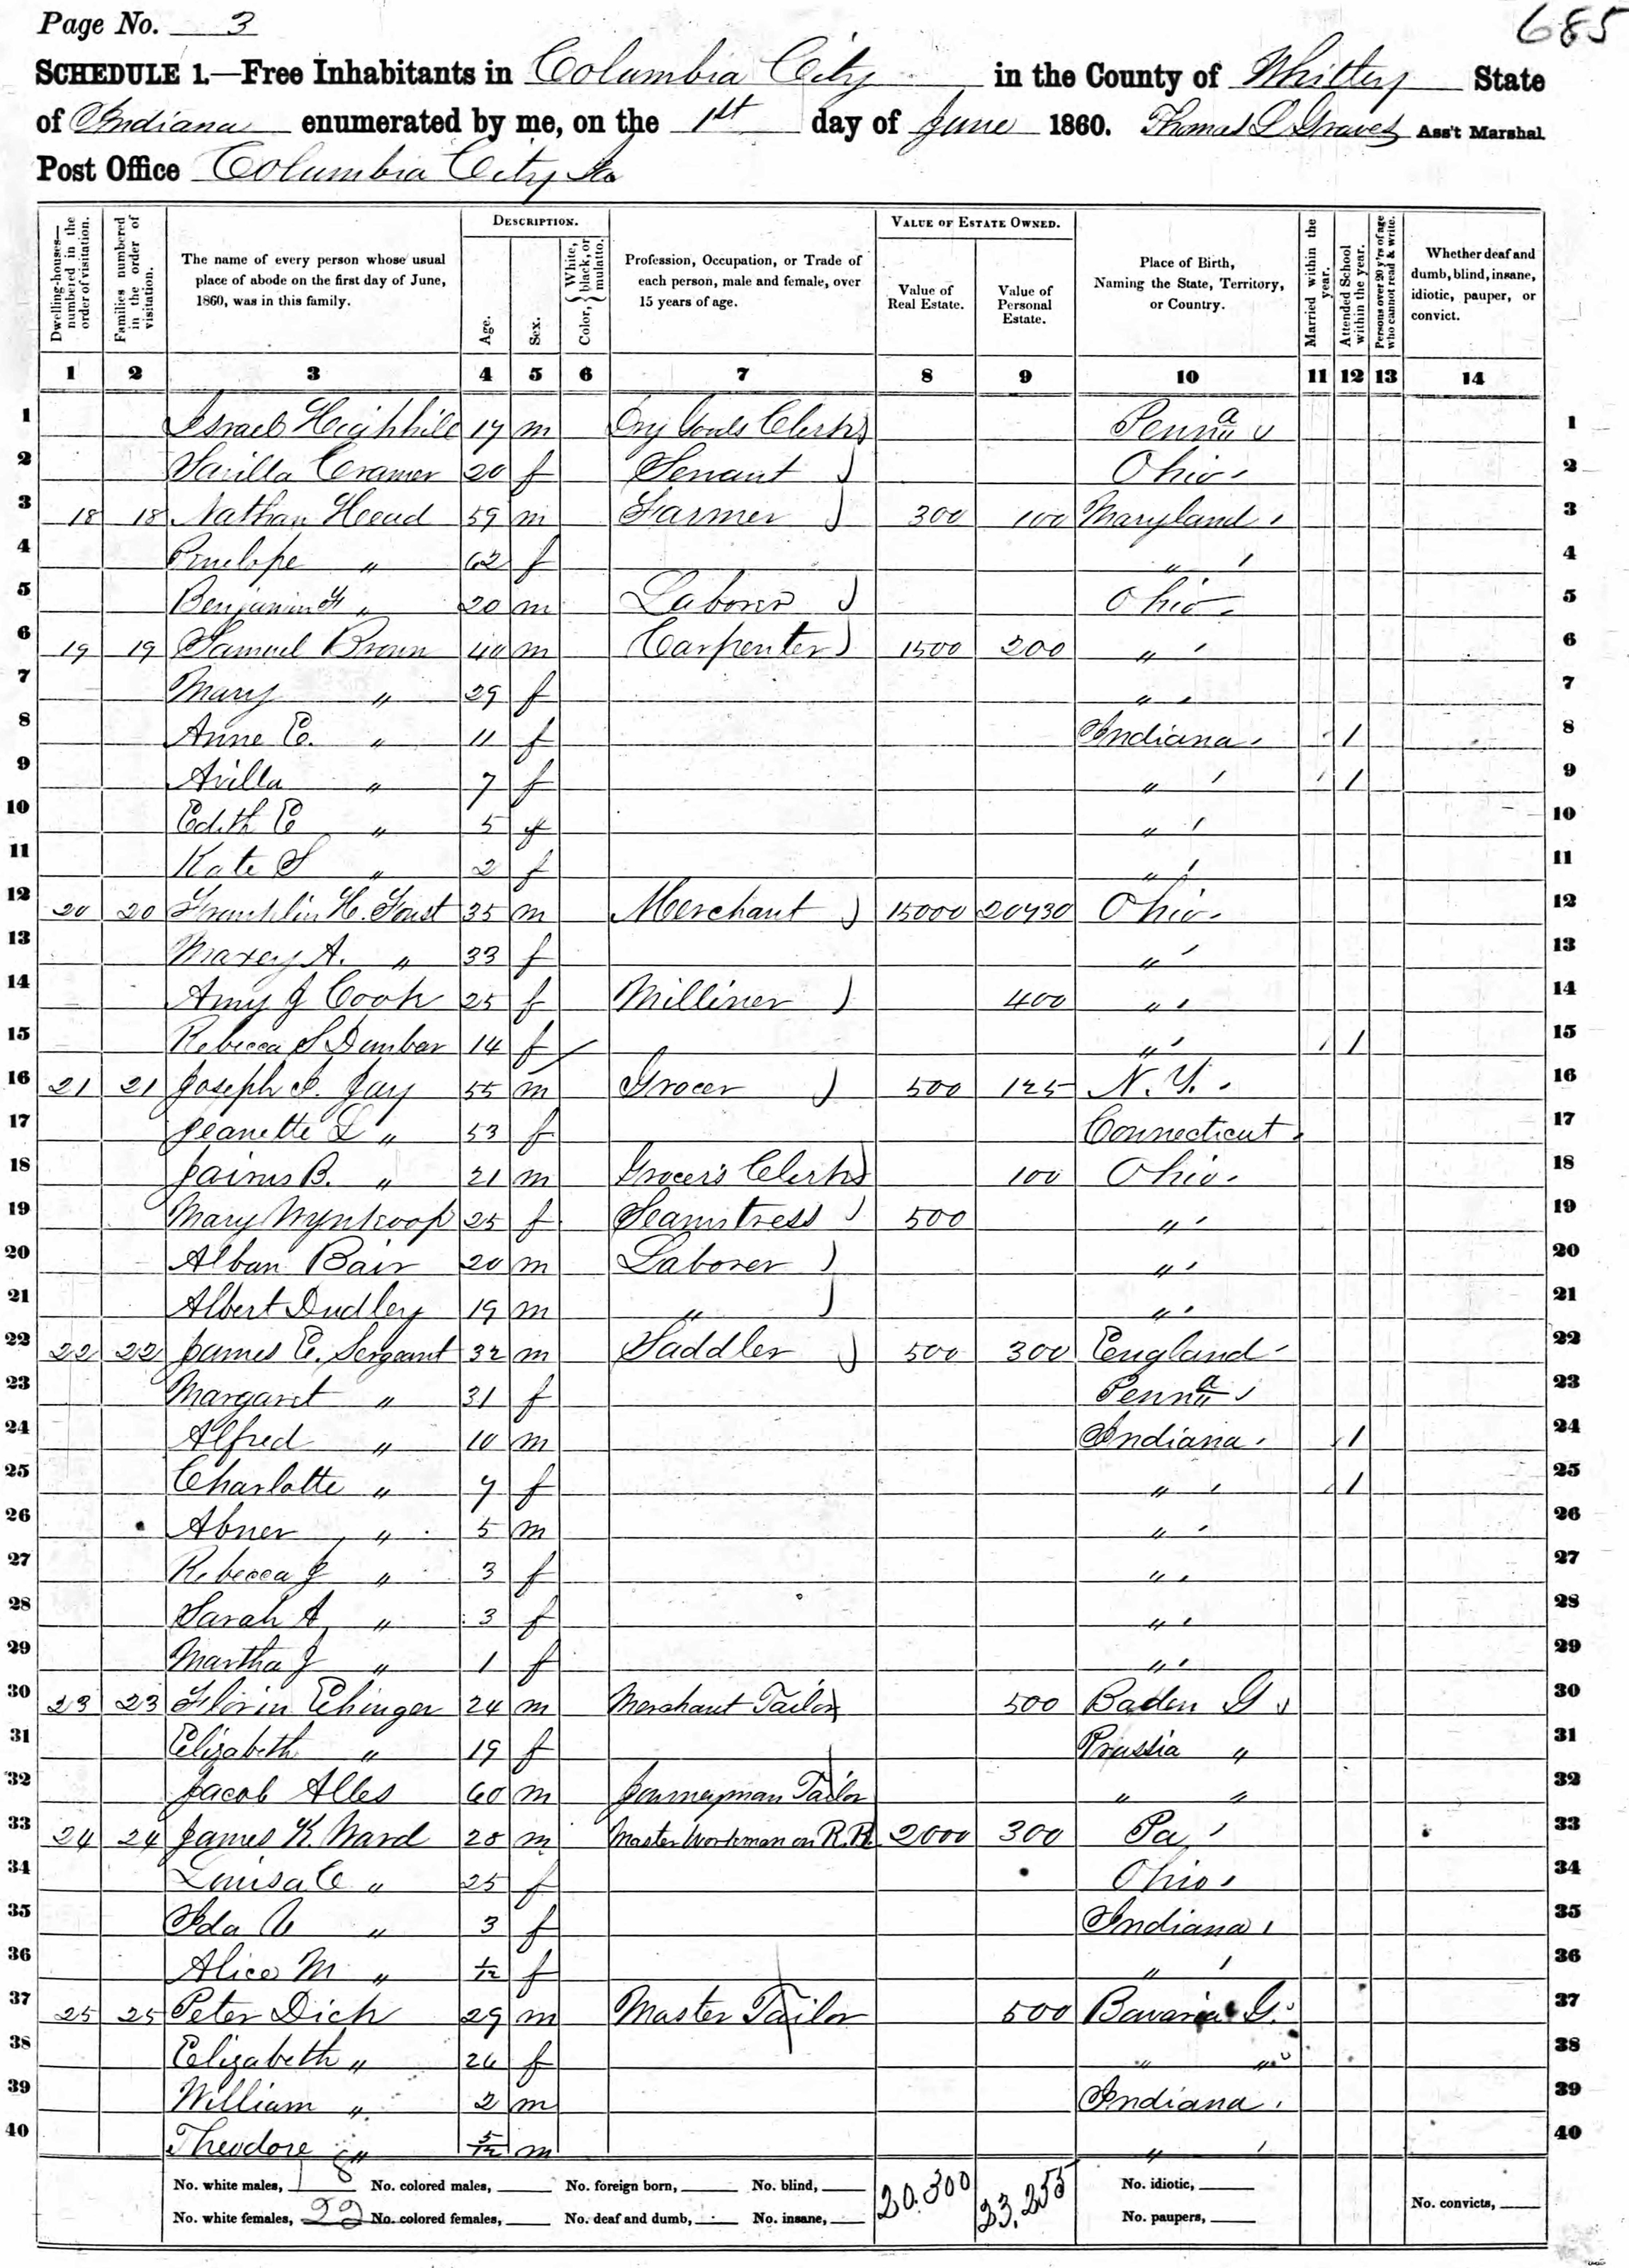 Page No. 3
685
SCHEDULE 1.—Free Inhabitants in Columbia City in the County of Whitley State
of Indiana enumerated by me, on the 1st day of June 1860. Thomas L Graves Ass't Marshal
Post Office Columbia City Ia
Dwelling-houses—numbered in the order of visitation.
Families numbered in the order of visitation.
The name of every person whose usual place of abode on the first day of June, 1860, was in this family.
DESCRIPTION.
Age.
Sex.
Color, { White, black, or mulatto.
Profession, Occupation, or Trade of each person, male and female, over 15 years of age.
VALUE OF ESTATE OWNED.
Value of Real Estate.
Value of Personal Estate.
Place of Birth, Naming the State, Territory, or Country.
Married within the year.
Attended School within the year.
Persons over 20 y'rs of age who cannot read & write.
Whether deaf and dumb, blind, insane, idiotic, pauper, or convict.
1 2 3 4 5 6 7 8 9 10 11 12 13 14
1 Israel 17 m Dry Goods Clerk Penna 1
2 Cramer 20 f Servant Ohio 2
3 18 18 Nathan Head 59 m Farmer 300 100 Maryland 3
4 Penelope " 62 f " 4
5 Benjamin F " 20 m Laborer Ohio 5
6 19 19 Samuel Brown 40 m Carpenter 1500 200 " 6
7 Mary " 29 f " 7
8 Anne E. " 11 f Indiana 1 8
9 Arilla " 7 f " 1 9
10 Edith E " 5 f " 10
11 Kate S " 2 f " 11
12 20 20 Franklin H. Foust 35 m Merchant 15000 20730 Ohio 12
13 Maxey A. " 33 f " 13
14 Amy J Cook 25 f Milliner 400 " 14
15 Rebecca S Dunbar 14 f " 1 15
16 21 21 Joseph I. Jay 55 m Grocer 500 125 N.Y. 16
17 Jeanette L " 53 f Connecticut 17
18 Jairus B. " 21 m Grocer's Clerk 100 Ohio 18
19 Mary Wynkoop 25 f Seamstress 500 " 19
20 Alban Bair 20 m Laborer " 20
21 Albert Dudley 19 m " " 21
22 22 22 James E. Sergeant 32 m Saddler 500 300 England 22
23 Margaret " 31 f Penna 23
24 Alfred " 10 m Indiana 1 24
25 Charlotte " 7 f " 1 25
26 Abner " 5 m " 26
27 Rebecca J " 3 f " 27
28 Sarah A " 3 f " 28
29 Martha J " 1 f " 29
30 23 23 Florin Ehinger 24 m Merchant Tailor 500 Baden G 30
31 Elizabeth " 19 f Prussia " 31
32 Jacob Alles 60 m Journeyman Tailor " " 32
33 24 24 James K. Ward 28 m Master Workman on R.R. 2000 300 Pa 33
34 Louisa C " 25 f Ohio 34
35 Ida " 3 f Indiana 35
36 Alice M " 1/12 f " 36
37 25 25 Peter Dich 29 m Master Tailor 500 Bavaria G. 37
38 Elizabeth " 26 f " " 38
39 William " 2 m Indiana 39
40 Theodore " 5/12 m " 40
No. white males, 18 No. colored males, No. foreign born, No. blind, 20.300 23,255 No. idiotic,
No. white females, 22 No. colored females, No. deaf and dumb, No. insane, No. paupers, No. convicts,